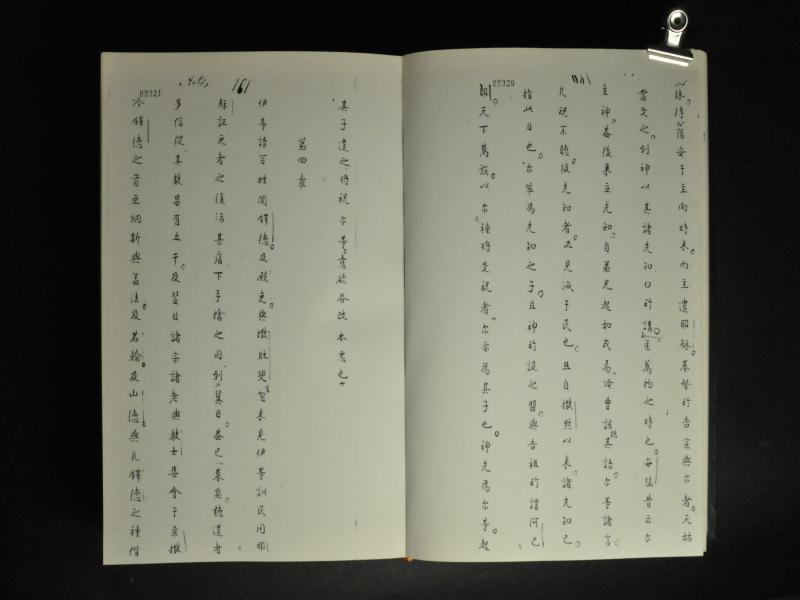 抹淳痛安于主面時來向主遣耶穌基督所告宣與尔者天姑
當受之到神以其諸先知口所講匡萬物之時也每瑟昔云尔
主神葢後來立先知自弟兄起如我焉冷會該聽其語尔等諸言
凡魂不聽彼先知者必見滅于民也且自撒慕以來諸先知已
指此日也尔輩為先知之子且神所設之盟與吾祖所謂阿巴
郎天下萬族以尔種將受祝者尔亦為其子也神先為尔等起
00320
其子遣之將祝尔等意欲各改本惡也
第四章
伊等語百姓間鐸德及殿吏與撒杜叟輩來見伊等訓民因耶
穌記死者之復活甚痛下手擒之囚到翼日葢已暮矣聽道者
多信從其數男有五千及翌日諸宗諸老與教士集會于柔撒
冷鐸德之首亞納斯與葢法及若翰及山德與凡鐸德之種偕
161
00321